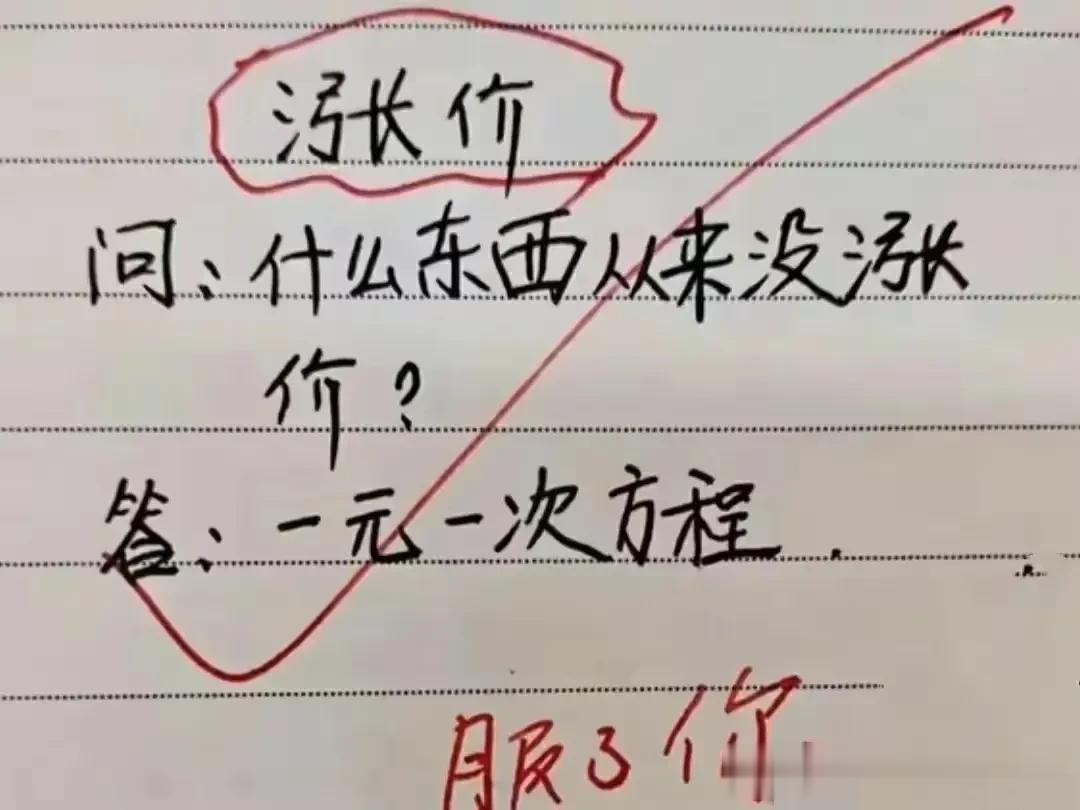 涨价
问:什么东西从来没涨
价?
答:一元一次方程.
服了你